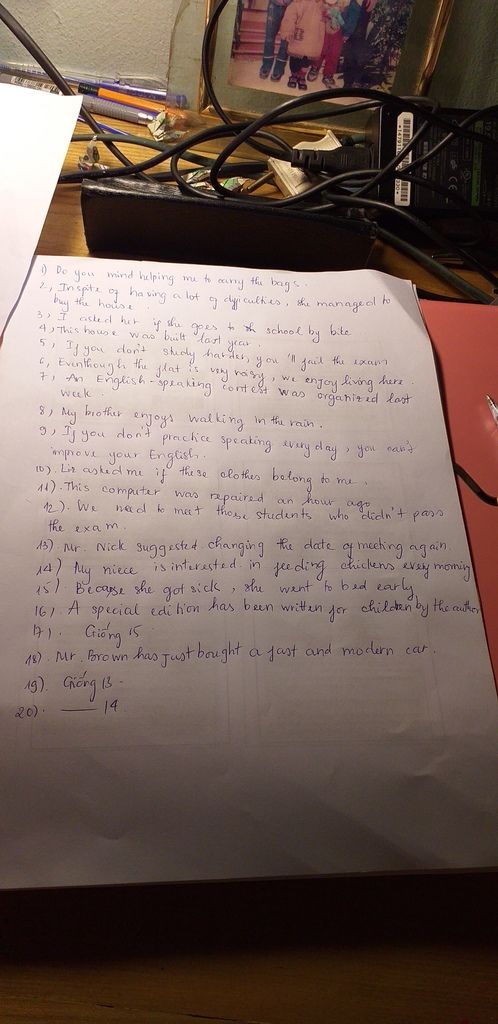 1) Do you mind helping me to carry the bags.
2, Inspite of having a lot of difficulties, she managed to
buy the house.
3, I asked her if she goes to school by bike
4, This house was built last year.
5, If you don't study harder, you 'll fail the exam
6, Eventhough the flat is very noisy, we enjoy living here.
7, An English-speaking contest was organized last
week.
8, My brother enjoys walking in the rain.
9, If you don't practice speaking every day, you can't
improve your English.
10). Liz asked me if these clothes belong to me.
11). This computer was repaired an hour ago
12). We need to meet those students who didn't pass
the exam.
13). Mr. Nick suggested changing the date of meeting again.
14) My niece is interested in feeding chickens every morning
15) Because she got sick, she went to bed early
16, A special edition has been written for children by the author
17). Giống 15
18). Mr. Brown has just bought a fast and modern car.
19). Giống 13 -
20). —— 14